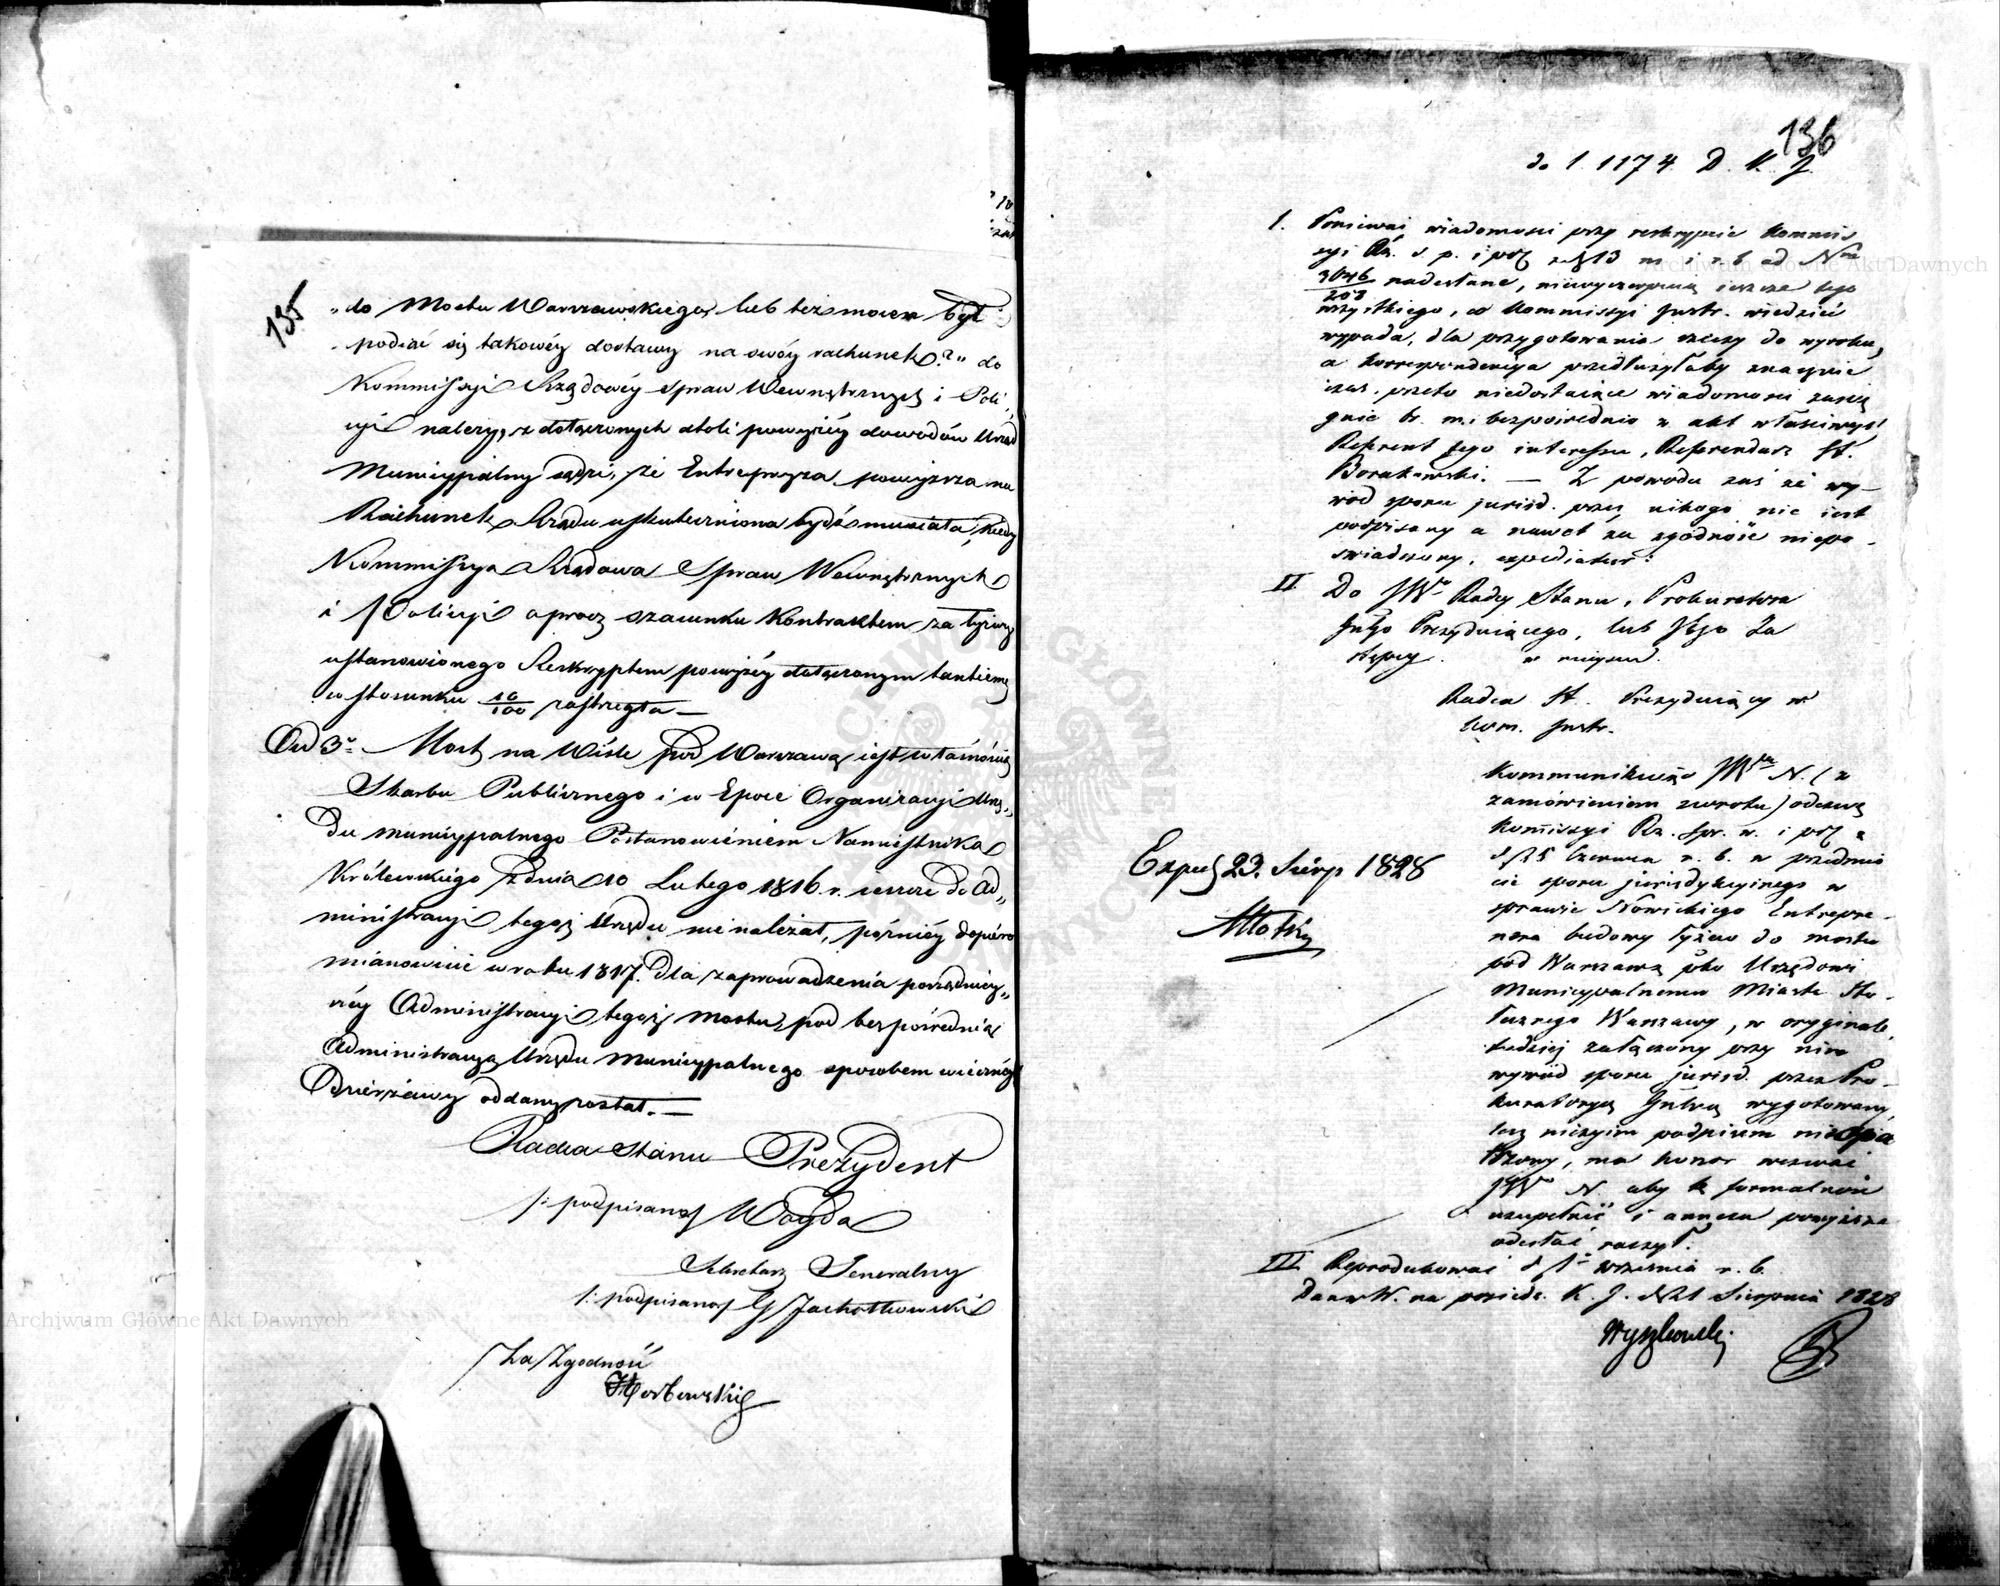 135
„do Mostu Warszawskiego, lub też mocen był
podjąć się takowéy dostawy na swóy rachunek?" do
Kommissyi Rządowéy Spraw Wewnętrznych i Poli„
cyi należy, z dołączonych atoli powyżéy dowodów Urząd
Municypalny sądzi, że Entrepryza powyższa na
Rachunek Urzędu uskuteczniona bydź musiała, kiedy
Kommissya Rządowa Spraw Wewnętrznych
i Policyi oprocz szacunku Kontraktem za łyżwy
ustanowionego Reskryptem powyżéy dołączonym tantiemę
w stosunku 10/100 zastrzegła —
Ad 3º Most na Wiśle pod Warszawą iest własnością
Skarbu Publicznego i w Epoce Organizacyi Urzę„
du Municypalnego Postanowieniem Namiestnika
Królewskiego z dnia 10 Lutego 1816 r. ieszcze do Ad„
ministracyi tegoż Urzędu nie należał, późniéy dopiero
mianowicie w roku 1817. dla zaprowadzenia porządniey„
széy Administracyi tegoż Mostu, pod bezpośrednią
Administracyą Urzędu Municypalnego sposobem wiecznéy
Dzierżawy oddany został. —
Radca Stanu Prezydent
/: podpisano/ Woyda
Sekretarz Generalny
/: podpisano/ G Jachołkowski
Za Zgodność
136
do l. 1174 D. K. J.
1. Ponieważ wiadomości przy reskrypcie Kommis
syi Rz. s. p. i pol z d 13 m. i r. b. ad Nrum
3046/208 nadesłane, niewyczerpuią ieszcze tego
wszystkiego, co Kommissyi Instr. wiedzieć
wypada, dla przygotowania rzeczy do wyroku,
a korrespondencya przedłużyłaby znacznie
czas, przeto niedostaiące wiadomości zasię
gnie br. m. bezpośrednio z akt właściwych
Referent tego interessu, Referendarz St.
Borakowski. — Z powodu zaś że wy—
wód sporu jurisd. przez nikogo nie iest
podpisany a nawet za zgodność niepo-
świadczony, expediatur:
II Do JWo Radcy Stanu, Prokuratora
Jnlgo Prezyduiącego, lub Jego Za
stępcy. w mieyscu.
Radca St. Prezyduiący w
Kom. Instr.
Kommunikuiąc JWmu N. (z
zamówieniem zwrotu) odezwę
Kommissyi Rz. spr. w. i pol z
d 25 Czerwca r. b. w przedmio
cie sporu jurisdykcyjnego w
sprawie Nowickiego Entrepre-
nera budowy łyżew do mostu
pod Warszawą pko Urzędowi
Municypalnemu Miasta Sto-
łecznego Warszawy, w oryginale,
tudzież załączony przy niey
wywód sporu jurisd. przez Pro-
kuratoryą Jnlną wygotowany,
lecz niczyim podpisem nieopa
trzony, ma honor wezwać
JWo N. aby tę formalność
uzupełnić i annexa powyższe
odesłać raczył.
Exped 23. Sierp 1828
III Reprodukować d 1o września r. b.
Dan w W. na posiedz. K. J. d 21 Sierpnia 1828
Wyszkowski